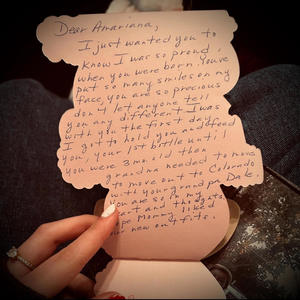 Dear Amariana,
I just wanted you to
know I was so proud
when you were born. You've
put so many smiles on my
face, you are so precious
don't let anyone tell
you any different I was
with you the first day
I got to hold you and feed
you, your 1st bottle until
you were 3 mo. old then
grandma needed to move
to move out to Colorado
with your grandpa Dale.
you are so in my
heart and thoughts.
hope Mommy liked
our new outfits.